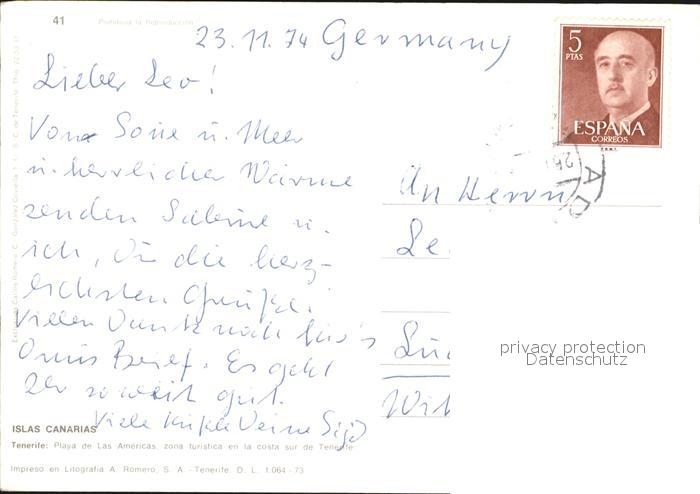 41 Prohibida la reproducción
23.11.74 Germany
5
PTAS
ESPAÑA
CORREOS
Lieber Leo!
Von Sonne u. Meer
u. herrlicher Wärme
senden Sabine u.
ich, Dir die herz-
lichsten Grüße.
Vielen Dank noch für's
Omis Brief. Es geht
ihr soweit gut.
Viele Küße Deine Sigi
An Herrn
Le
Lü
Wit
privacy protection
Datenschutz
ISLAS CANARIAS
Tenerife: Playa de Las Américas, zona turística en la costa sur de Tenerife
Impreso en Litografía A. Romero, S. A. - Tenerife. D. L. 1.064 - 73